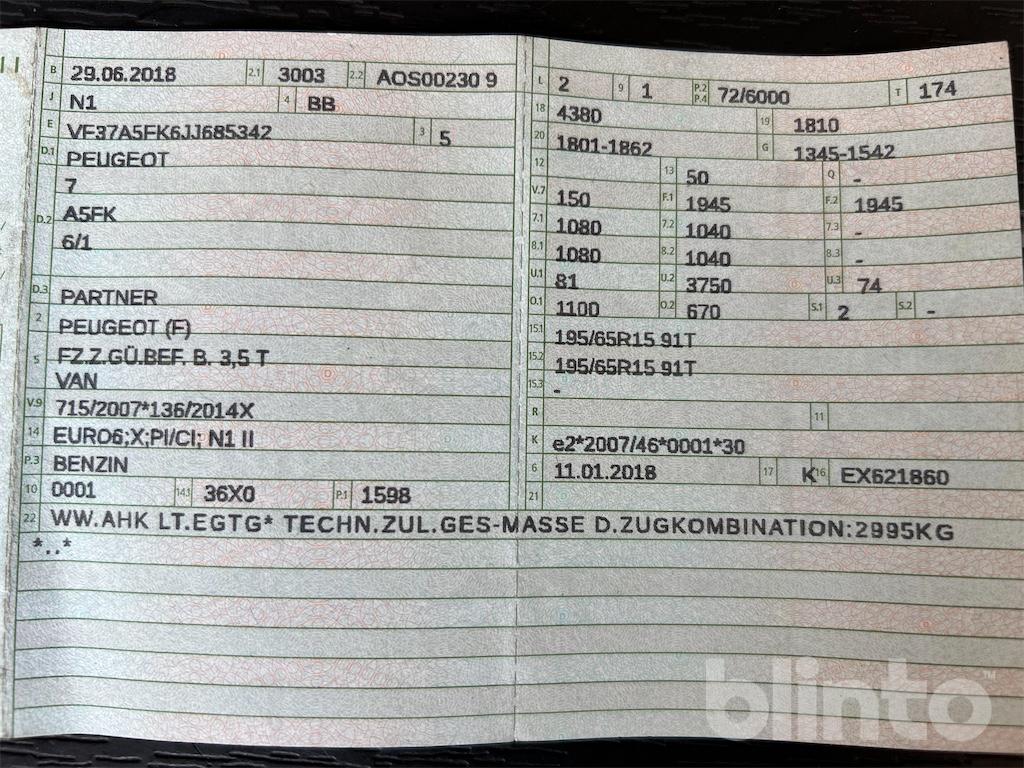 B 29.06.2018 2.1 3003 2.2 AOS00230 9
J N1 4 BB
E VF37A5FK6JJ685342 3 5
D.1 PEUGEOT
7
D.2 A5FK
6/1
D.3 PARTNER
2 PEUGEOT (F)
5 FZ.Z.GÜ.BEF. B. 3,5 T
VAN
V.9 715/2007*136/2014X
14 EURO6;X;PI/CI; N1 II
P.3 BENZIN
10 0001 14.1 36X0 P.1 1598
L 2 9 1 P.2 P.4 72/6000 T 174
18 4380 19 1810
20 1801-1862 G 1345-1542
12 13 50 Q -
V.7 150 F.1 1945 F.2 1945
7.1 1080 7.2 1040 7.3 -
8.1 1080 8.2 1040 8.3 -
U.1 81 U.2 3750 U.3 74
O.1 1100 O.2 670 S.1 2 S.2 -
15.1 195/65R15 91T
15.2 195/65R15 91T
15.3 -
R 11
K e2*2007/46*0001*30
6 11.01.2018 17 K 16 EX621860
21
22 WW.AHK LT.EGTG* TECHN.ZUL.GES-MASSE D.ZUGKOMBINATION:2995KG
*..*
blinto™